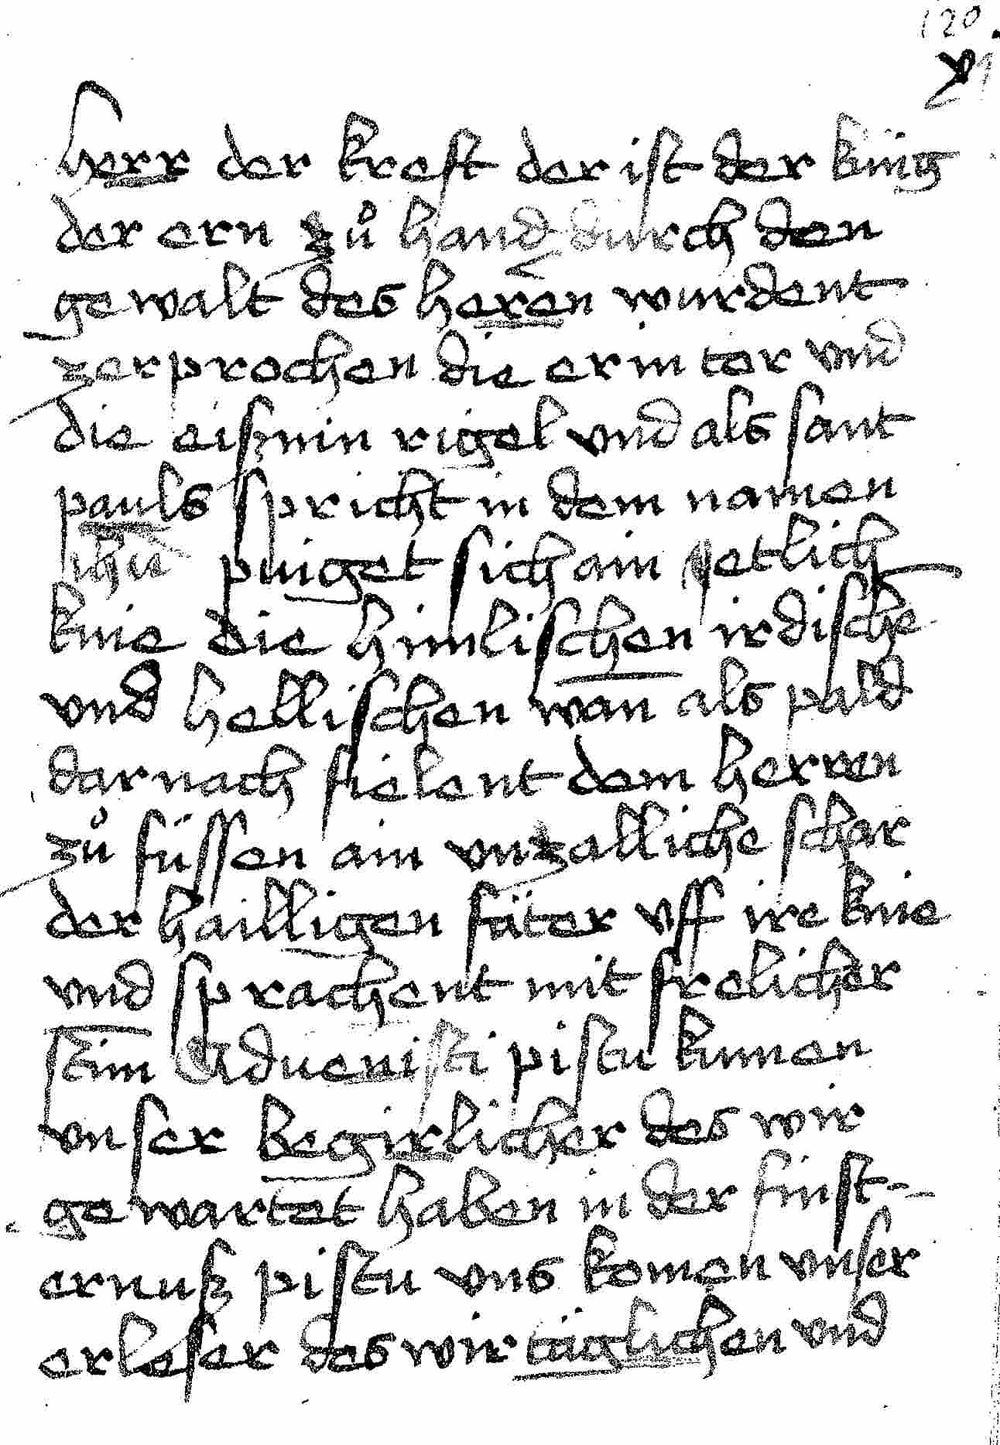 120.
herr der kreft der ist der küng
der ern zů hand durch den
gewalt des heren wurdent
zerprochen die erin tor vnd
die eißnin rigel vnd als sant
pauls spricht in dem namen
ihū puiget sich ain yetlich
knie die himlischen irdische
vnd hellischen wan als pald
darnach fielent dem herren
zů füssen ain vnzalliche schar
der hailligen fäter vff ire knie
vnd sprachent mit frelicher
stim Aduenisti pistu kumen
vnser begirlicher des wir
gewartet haben in der finst-
ernuß pistu vns komen vnser
erleser des wir täglichen vnd